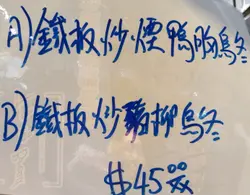 A)鐵板炒煙鴨胸烏冬
B)鐵板炒豬柳烏冬
$45.00